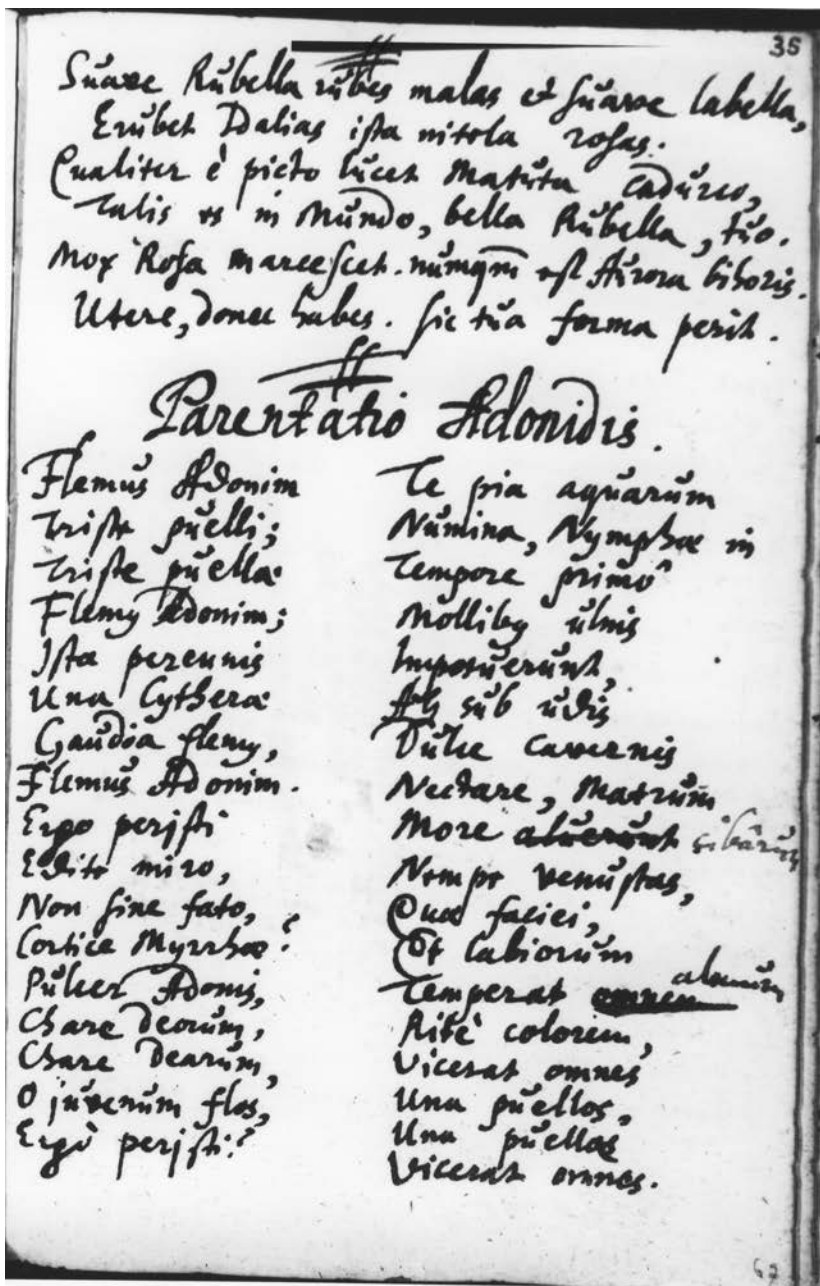 35
Suave Rubella rubes malas et suave labella,
Erubet Idalias ista nitela rosas.
Qualiter è picto lucet Matuta cadurco,
Talis es in Mundo, bella Rubella, tuo.
Mox Rosa marcescet. numqm est Aurora bihoris.
Utere, donec habes. sic tua forma perit.
Parentatio Adonidis.
Flemus Adonim
Triste puelli;
Triste puellae
Flemq Adonim;
Ista perennis
Una Cytherae
Gaudia flemq,
Flemus Adonim.
Ergo perijsti
Edite miro,
Non sine fato,
Cortice Myrrhae?
Pulcer Adonis,
Chare Deorum,
Chare Dearum,
O juvenum flos,
Ergò perijsti?
Te pia aquarum
Numina, Nymphae in
Tempore primô
Mollibq ulnis
Imposuerunt,
Ah sub udis
Dulce cavernis
Nectare, Matrum
More aluerunt cibârunt
Nempe venustas,
Quae faciei,
Et labiorum
Temperat omnem almum
Ritè colorem,
Vicerat omnes
Una puellos,
Una puellas
Vicerat omnes.